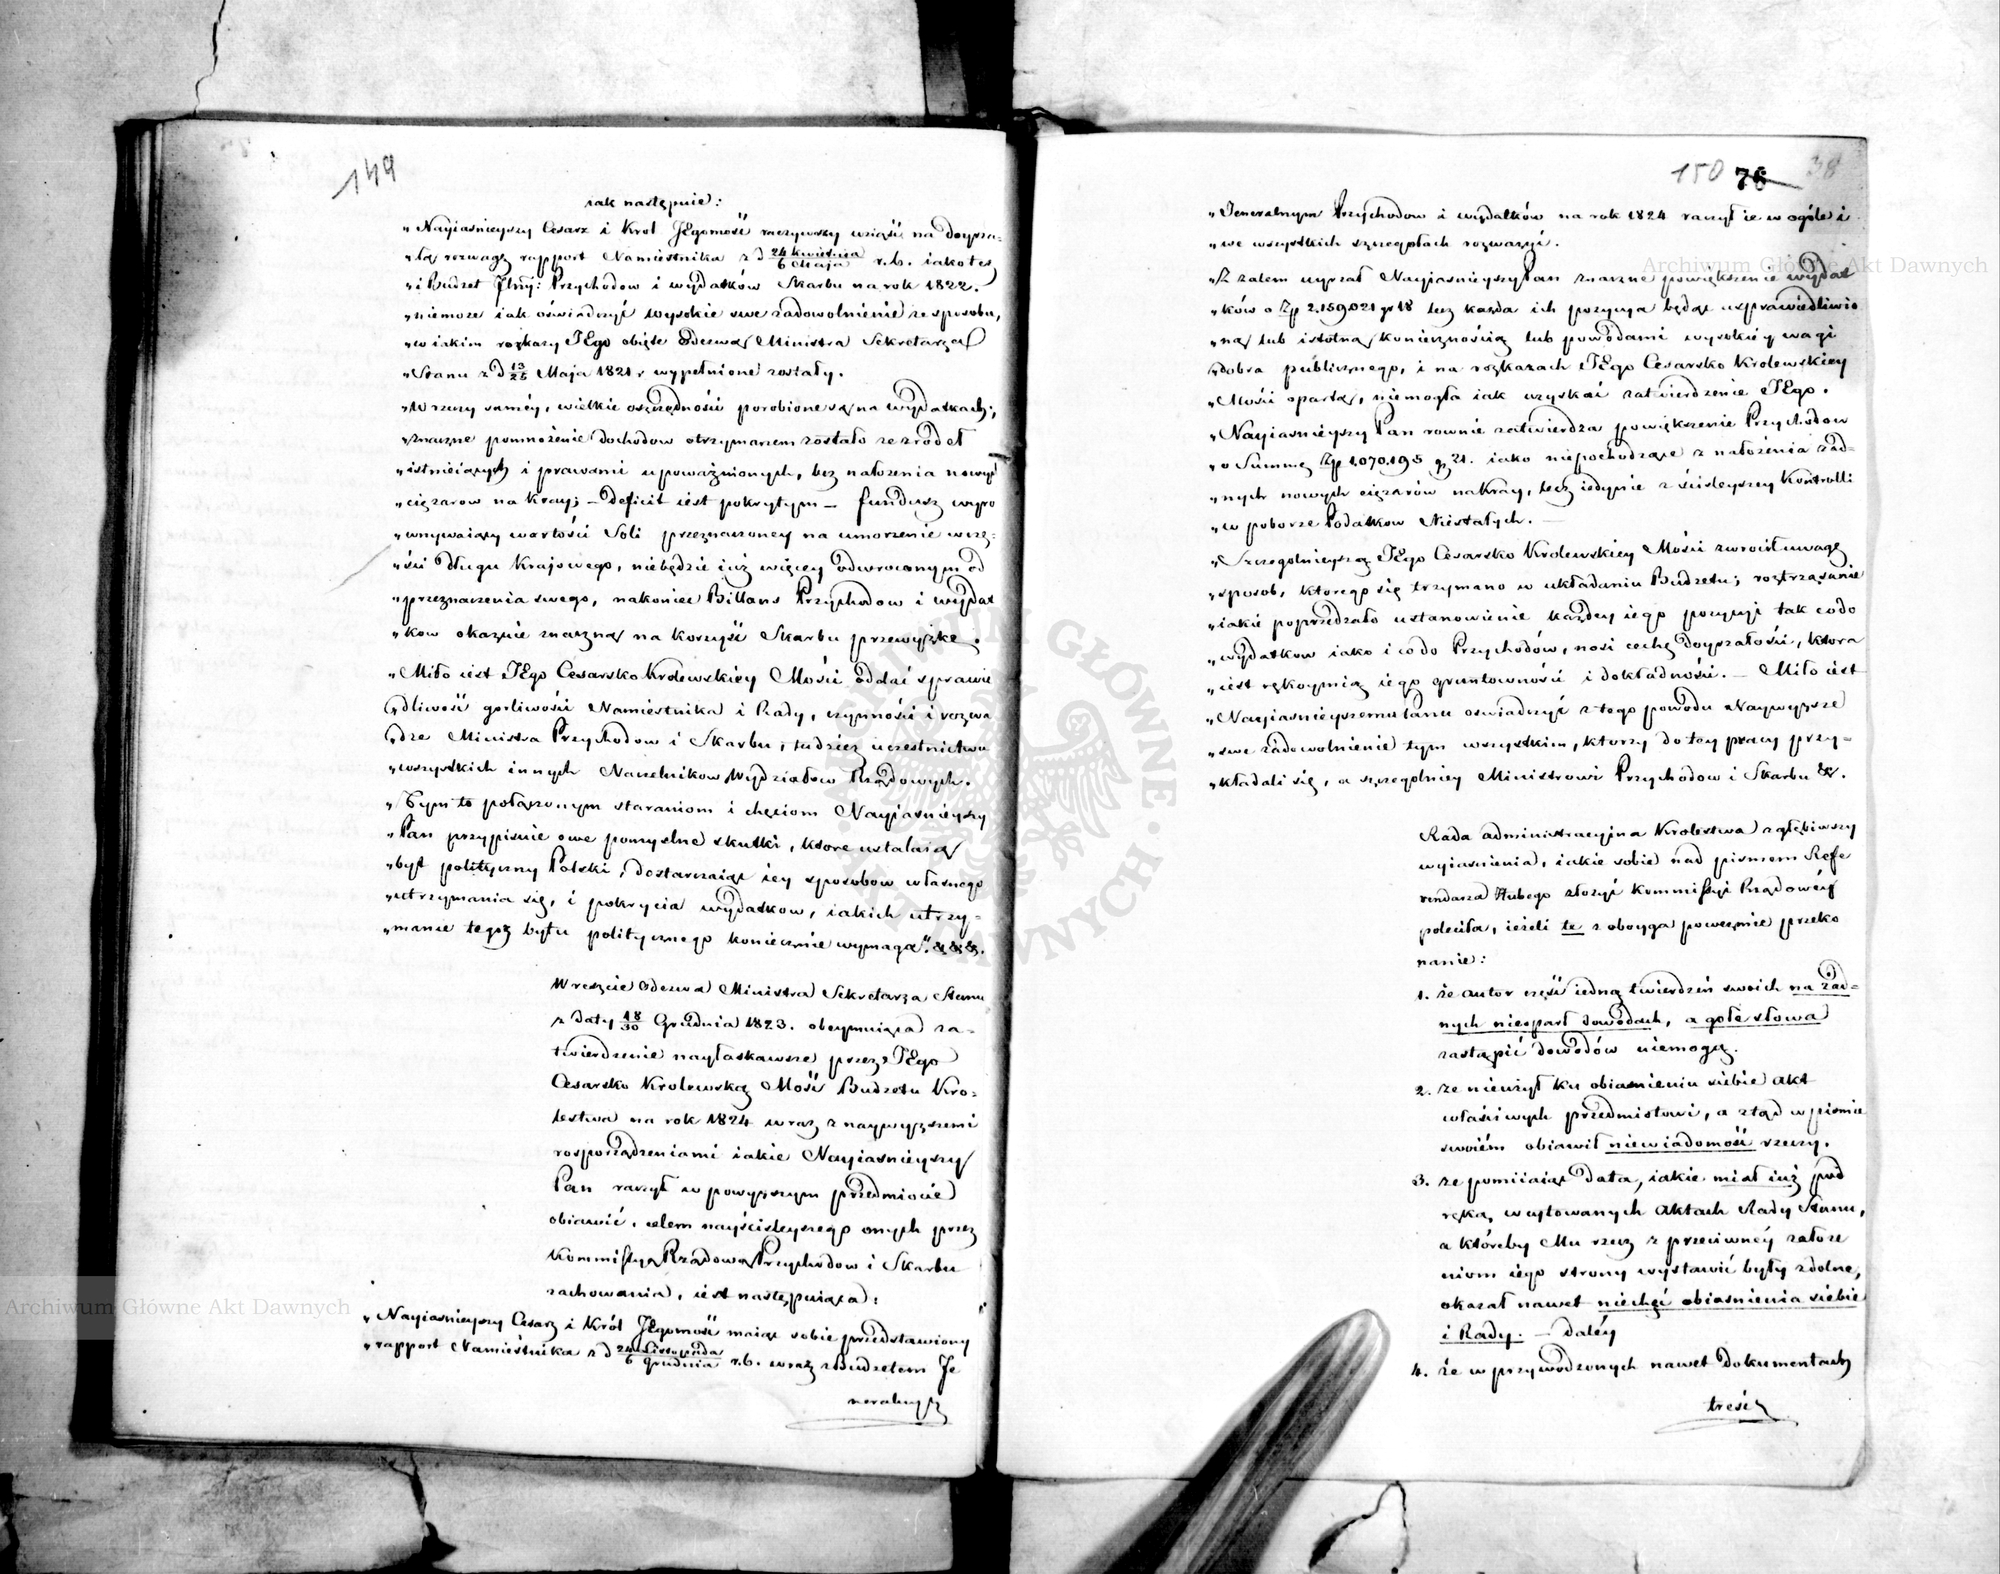 149
iak następnie:
„Nayiaśnieyszy Cesarz i Krol JEgomość raczywszy wziąść na doyrza-
„łą rozwagę rapport Namiestnika z d 24 kwietnia / 6 Maja r. b. iako też
„i Budżet Jlny: Przychodow i wydatków Skarbu na rok 1822.
„niemoże iak oświadczyć wysokie swe zadowolnienie ze sposobu,
„w iakim rozkazy JEgo obięte Odezwą Ministra Sekretarza
„Stanu z d 13/25 Maja 1821 r wypełnione zostały.
„W rzeczy saméy, wielkie oszczędności porobione są na wydatkach;
„znaczne pomnożenie dochodow otrzymanem zostało ze zrodeł
„istnieiących i prawami upoważnionych, bez nałożenia nowych
„ciężarow na Kray; — Deficit iest pokrytym — fundusz wyro
„wnywaiący wartości Soli przeznaczoney na umorzenie częś-
„ści Długu Krajowego, niebędzie iuż więcey odwroconym od
„przeznaczenia swego, nakoniec Billans Przychodow i wydat
„kow okazuie znaczną na korzyść Skarbu przewyżkę.
„Miło iest JEgo Cesarsko Krolewskiéy Mości oddać sprawie
„dliwość gorliwości Namiestnika i Rady, czynności i rozwa
„dze Ministra Przychodow i Skarbu, tudzież uczestnictwu
„wszystkich innych Naczelnikow Wydziałow Rządowych.
„Tym to połączonym staraniom i chęciom Nayiaśnieyszy
„Pan przypisuie owe pomyślne skutki, ktore ustalaią
„byt polityczny Polski, dostarczaiąc iey sposobow własnego
„utrzymania się, i pokrycia wydatkow, iakich utrzy-
„manie tegoż bytu politycznego koniecznie wymaga". &&&.
W reszcie Odezwa Ministra Sekretarza Stanu
z daty 18/30 Grudnia 1823. obeymuiąca za-
twierdzenie nayłaskawsze przez JEgo
Cesarsko Krolewską Mość Budżetu Kro-
lestwa na rok 1824 wraz z naywyższemi
rosporządzeniami iakie Nayiaśnieyszy
Pan raczył w powyższym przedmiocie
obiawić, celem nayściśleyszego onych przez
Kommissyą Rządową Przychodow i Skarbu
zachowania, iest następuiąca:
„Nayiaśnieyszy Cesarz i Król JEgomość maiąc sobie przedstawiony
„rapport Namiestnika z d 24 Listopada / 6 Grudnia r. b. wraz z Budżetem Je
neralnym
150 76 38
„Jeneralnym Przychodow i wydatków na rok 1824 raczył ie w ogóle i
„we wszystkich szczegołach rozważyć.
„Z żalem uyrzał Nayiaśnieyszy Pan znaczne powiększenie wydat
„ków o Zp 2.159.021 gr 18 lecz każda ich pozycya będąc usprawiedliwio
„ną lub istotną koniecznością lub powodami wysokiéy wagi
„dobra publicznego, i na rozkazach JEgo Cesarsko Krolewskiey
„Mości opartą, niemogła iak uzyskać zatwierdzenie JEgo.
„Nayiaśnieyszy Pan rownie zatwierdza powiększenie Przychodow
„o Summę Zp 1.070.195 g 21. iako niepochodzące z nałożenia żad-
„nych nowych ciężarów na kray, lecz iedynie z ściśleyszey Kontrolli
„w poborze Podatkow Niestałych. —
„Szczegolnieyszą JEgo Cesarsko Krolewskiey Mości zwrocił uwagę
„sposob, ktorego się trzymano w układaniu Budżetu; roztrząsanie
„iakie poprzedzało ustanowienie każdey iego pozycyi tak co do
„wydatkow iako i co do Przychodów, nosi cechę doyrzałości, ktora
„iest rękoymią iego gruntowności i dokładności. — Miło iest
„Nayiaśnieyszemu Panu oświadczyć z tego powodu Naywyższe
„swe zadowolnienie tym wszystkim, ktorzy do tey pracy przy-
„kładali się, a szczegolniey Ministrowi Przychodow i Skarbu &.
Rada administracyjna Krolestwa zgłębiwszy
wyiaśnienia, iakie sobie nad pismem Refe
rendarza Hubego złożyć Kommissyi Rządowéy
poleciła, ieżeli te z oboyga poweźmie przeko
nanie:
1. że autor część iedną twierdzeń swoich na żad-
nych niesparł dowodach, a gołe słowa
zastąpić dowodów niemogą.
2. że nieużył ku obiaśnieniu siebie akt
właściwych przedmiotowi, a ztąd w piśmie
swoiém obiawił niewiadomość rzeczy.
3. że pomiiaiąc Data, iakie miał iuż pod
ręką, w cytowanych Aktach Rady Stanu,
a któreby Mu rzecz z przeciwnéy założe
niom iego strony wystawić były zdolne,
okazał nawet niechęć obiaśnienia siebie
i Rady. — daléy
4. że w przywodzonych nawet Dokumentach
treść
Archiwum Główne Akt Dawnych
Archiwum Główne Akt Dawnych
ARCHIWUM GŁÓWNE AKT DAWNYCH